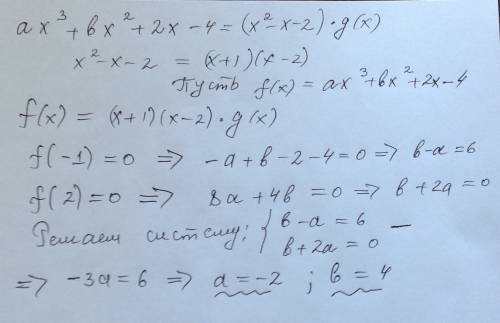 ax³ + bx² + 2x - 4 = (x² - x - 2) · g(x)
x² - x - 2 = (x+1)(x-2)
Пусть f(x) = ax³ + bx² + 2x - 4
f(x) = (x+1)(x-2) · g(x)
f(-1) = 0 => -a + b - 2 - 4 = 0 => b - a = 6
f(2) = 0 => 8a + 4b = 0 => b + 2a = 0
Решаем систему: { b - a = 6 —
b + 2a = 0
=> -3a = 6 => a = -2 ; b = 4